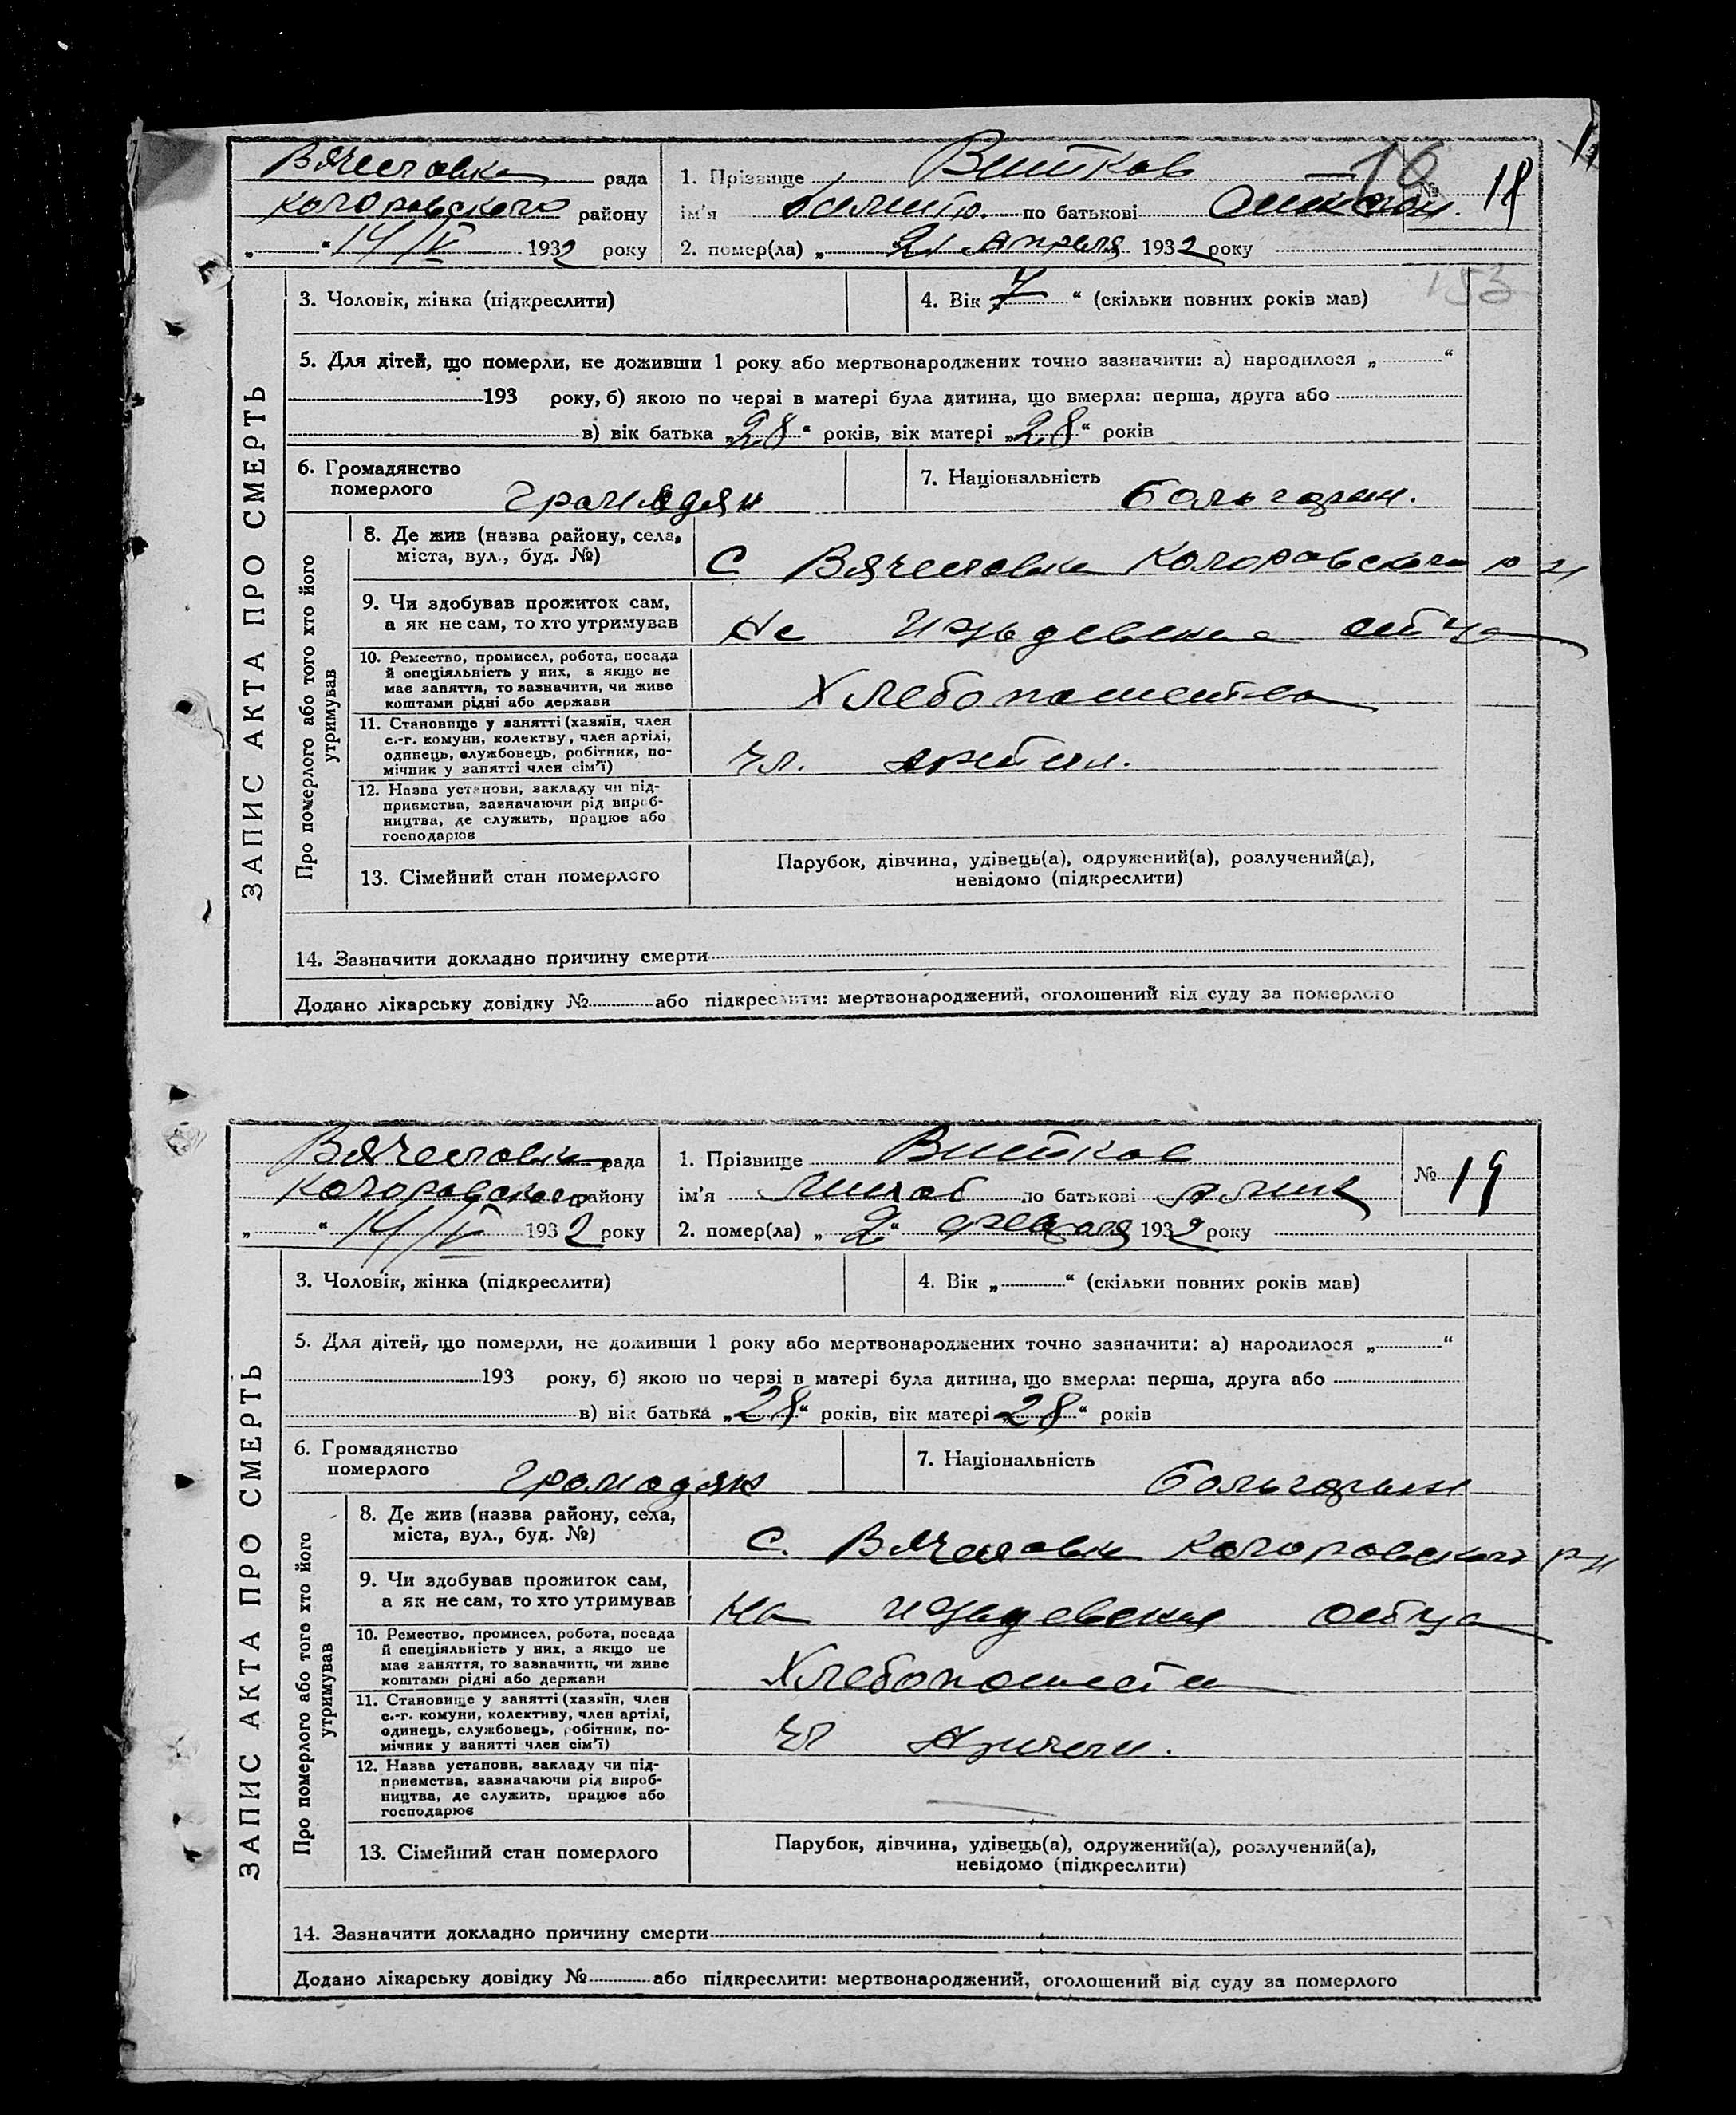 Вячеславка рада
1. Прізвище Витков
№ 18
16
районy
ім'я по батькові
„ “ 14/V 1932 року
2. помер(ла) „21 Апреля 1932 року
153
3. Чоловік, жінка (підкреслити)
4. Вік „7“ (скільки повних років мав)
5. Для дітей, що померли, не доживши 1 року або мертвонароджених точно зазначити: а) народилося „ “
193 року, б) якою по черзі в матері була дитина, що вмерла: перша, друга або
в) вік батька „28“ років, вік матері „28“ років
6. Громадянство
померлого
громадян
7. Національність
ЗАПИС АКТА ПРО СМЕРТЬ
Про померлого або того хто його
утримував
8. Де жив (назва району, села,
міста, вул., буд. №)
с Вячеславка
9. Чи здобував прожиток сам,
а як не сам, то хто утримував
отца
10. Ремество, промисел, робота, посада
й спеціяльність у них, а якщо не
має заняття, то зазначити, чи живе
коштами рідні або держави
11. Становище у занятті (хазяїн, член
с.-г. комуни, колективу, член артілі,
одинець, службовець, робітник, по-
мічник у занятті член сім'ї)
чл. артели.
12. Назва установи, закладу чи під-
приємства, зазначаючи рід вироб-
ництва, де служить, працює або
господарює
13. Сімейний стан померлого
Парубок, дівчина, удівець(а), одружений(а), розлучений(а),
невідомо (підкреслити)
14. Зазначити докладно причину смерти
Додано лікарську довідку № або підкреслити: мертвонароджений, оголошений від суду за померлого
Вячеславка рада
1. Прізвище Витков
№ 19
району
ім'я по батькові
„ “ 14/V 1932 року
2. помер(ла) „2“ февраля 1932 року
3. Чоловік, жінка (підкреслити)
4. Вік „ “ (скільки повних років мав)
5. Для дітей, що померли, не доживши 1 року або мертвонароджених точно зазначити: а) народилося „ “
193 року, б) якою по черзі в матері була дитина, що вмерла: перша, друга або
в) вік батька „28“ років, вік матері „28“ років
6. Громадянство
померлого
громадян
7. Національність
ЗАПИС АКТА ПРО СМЕРТЬ
Про померлого або того хто його
утримував
8. Де жив (назва району, села,
міста, вул., буд. №)
с. Вячеславка
9. Чи здобував прожиток сам,
а як не сам, то хто утримував
на отца
10. Ремество, промисел, робота, посада
й спеціяльність у них, а якщо не
має заняття, то зазначити, чи живе
коштами рідні або держави
11. Становище у занятті (хазяїн, член
с.-г. комуни, колективу, член артілі,
одинець, службовець, робітник, по-
мічник у занятті член сім'ї)
чл
12. Назва установи, закладу чи під-
приємства, зазначаючи рід вироб-
ництва, де служить, працює або
господарює
13. Сімейний стан померлого
Парубок, дівчина, удівець(а), одружений(а), розлучений(а),
невідомо (підкреслити)
14. Зазначити докладно причину смерти
Додано лікарську довідку № або підкреслити: мертвонароджений, оголошений від суду за померлого